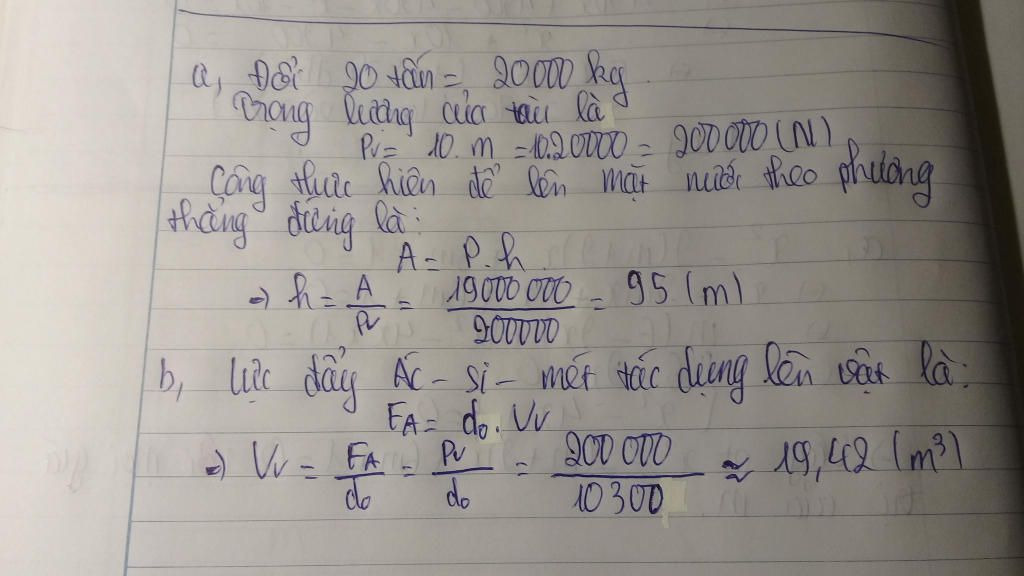 a, Đổi 20 tấn = 20000 kg.
Trọng lượng của tàu là
Pv = 10.m = 10.20000 = 200000 (N)
Công thực hiện để lên mặt nước theo phương
thẳng đứng là:
A = P.h
=> h = A/Pv = 19000000/200000 = 95 (m)
b, Lực đẩy Ác-si-mét tác dụng lên vật là:
FA = do.Vv
=> Vv = FA/do = Pv/do = 200000/10300 ≈ 19,42 (m³)